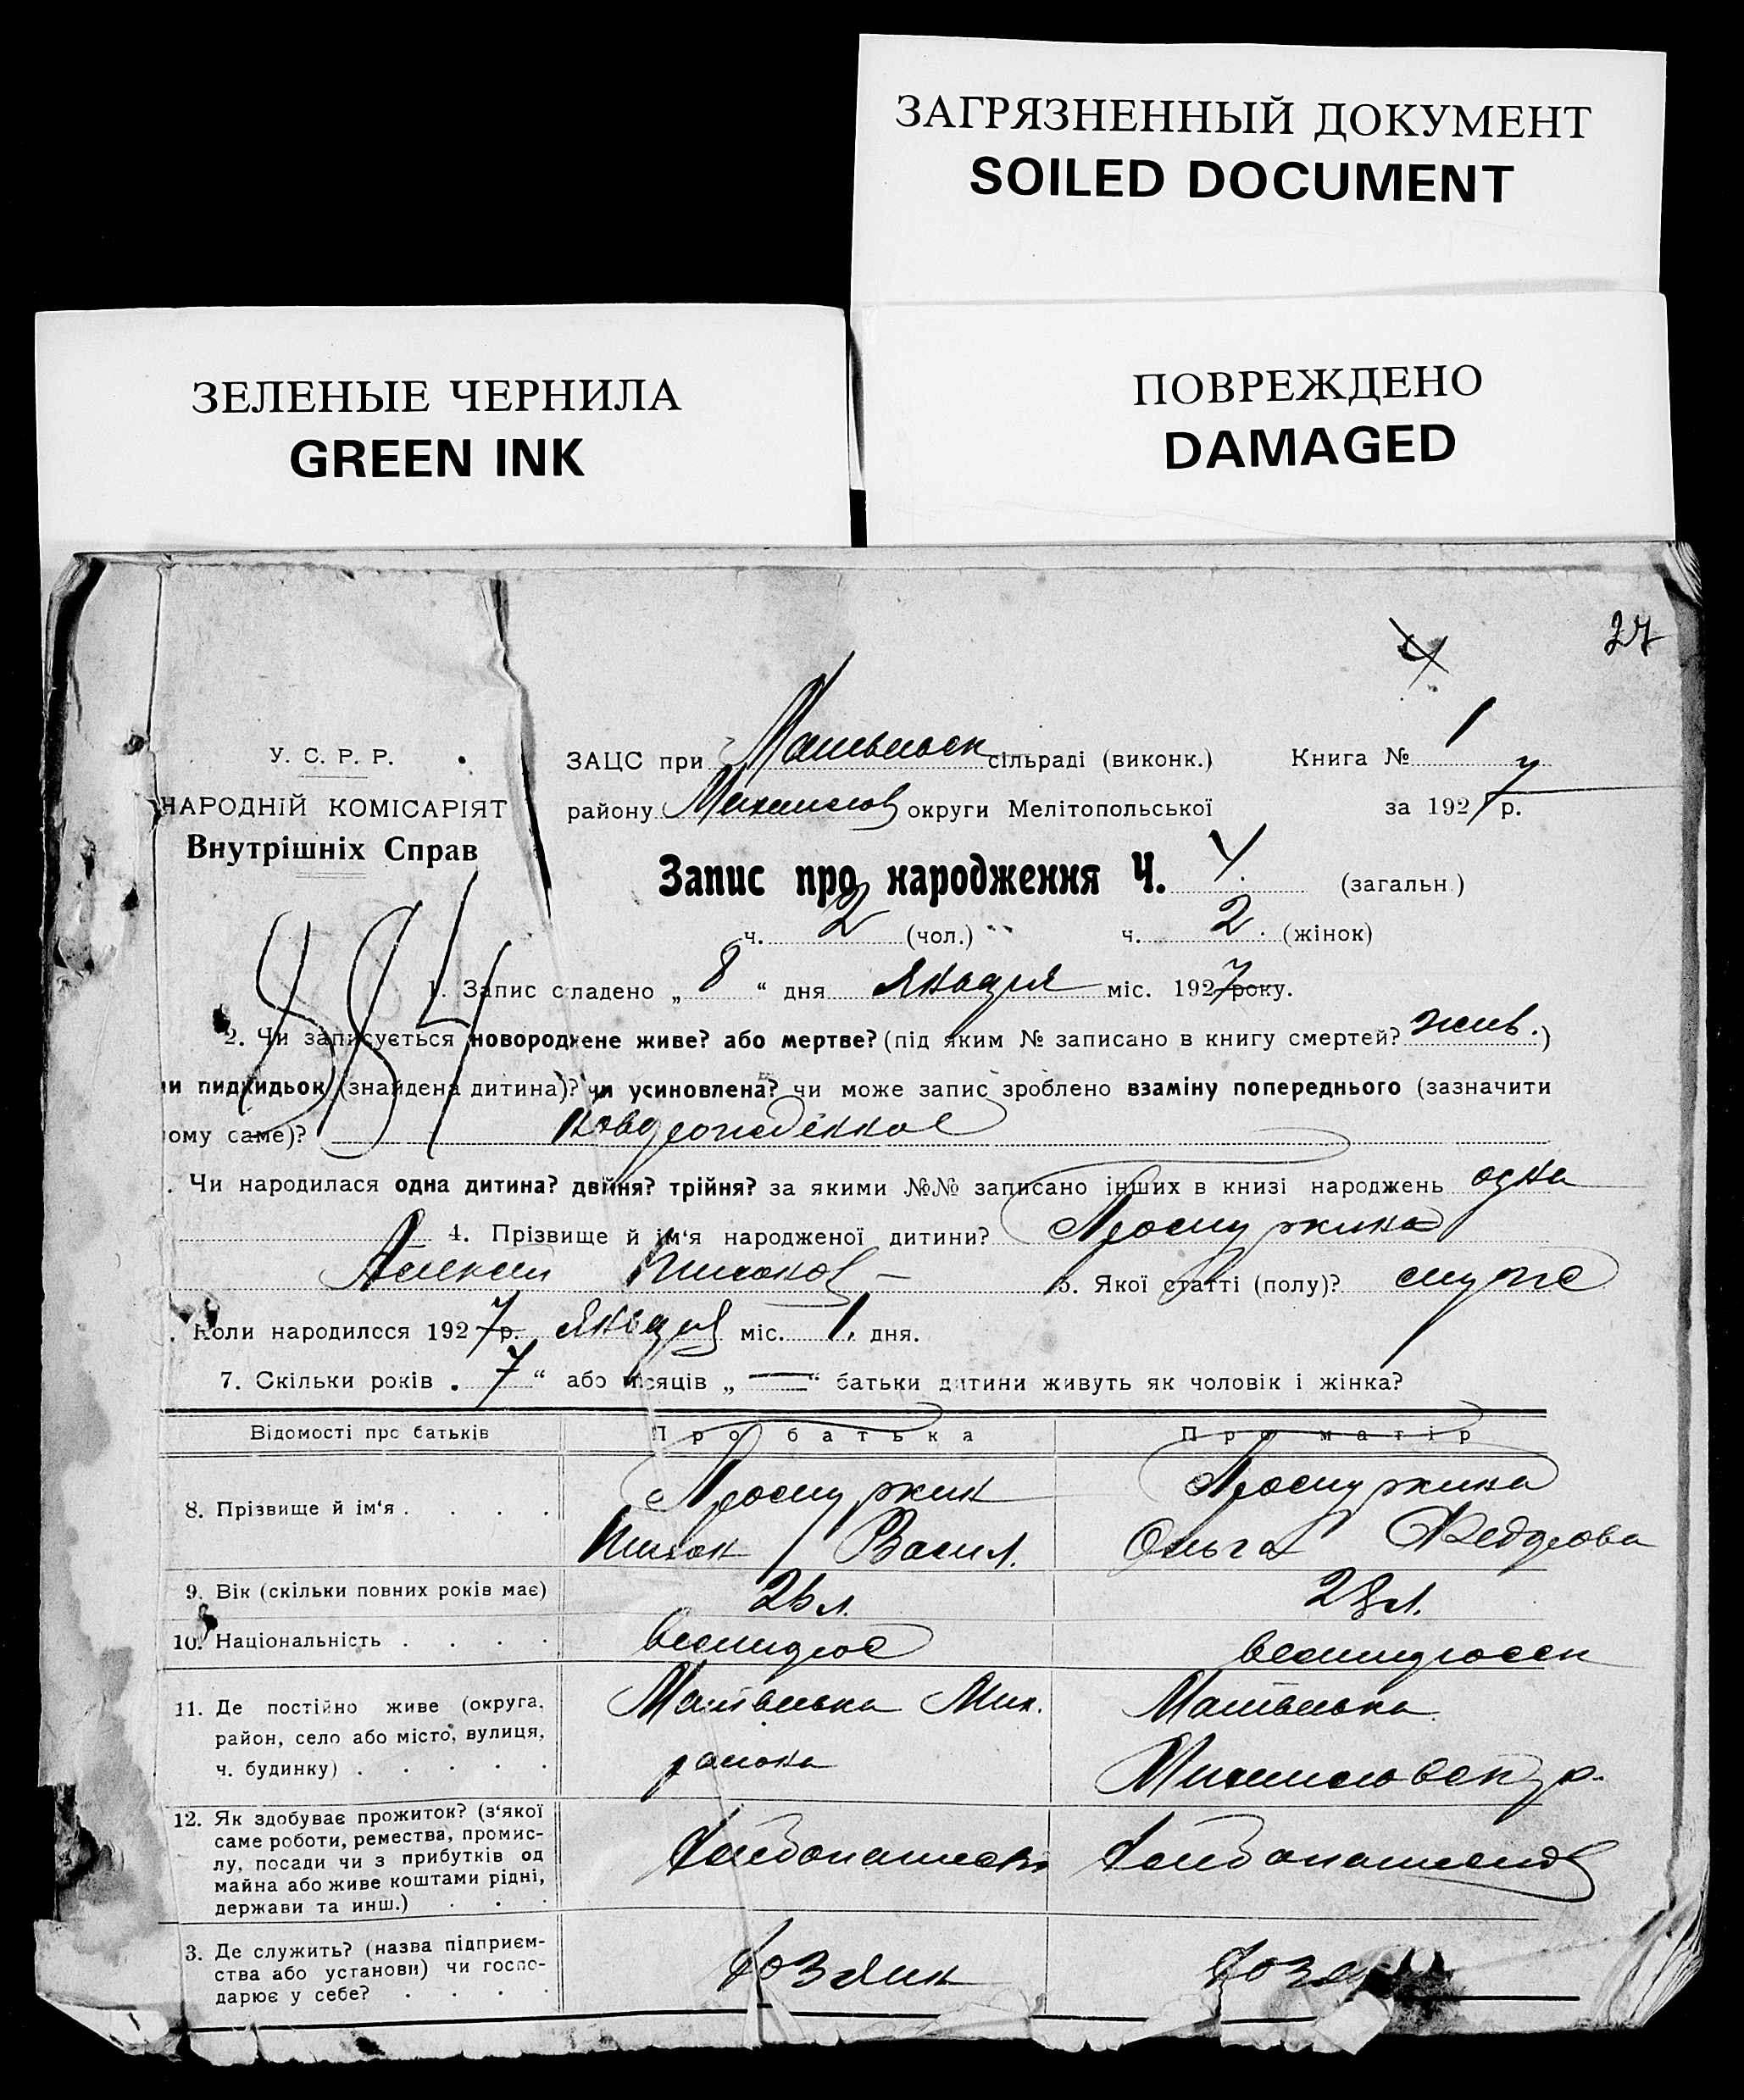 ЗАГРЯЗНЕННЫЙ ДОКУМЕНТ
SOILED DOCUMENT
ЗЕЛЕНЫЕ ЧЕРНИЛА
GREEN INK
ПОВРЕЖДЕНО
DAMAGED
27
4
У. С. Р. Р.
НАРОДНІЙ КОМІСАРІЯТ
Внутрішніх Справ
ЗАЦС при Матвеевск сільраді (виконк.) Книга № 1
району Михайлов округи Мелітопольської за 1927 р.
Запис про народження Ч. 4. (загальн.)
ч. 2 (чол.) ч. 2. (жінок)
584
1. Запис складено „ 8 “ дня Января міс. 1927 року.
2. Чи записується новороджене живе? або мертве? (під яким № записано в книгу смертей? жив.)
чи пидкидьок (знайдена дитина)? чи усиновлена? чи може запис зроблено взаміну попереднього (зазначити
ому саме)? новорожденное
. Чи народилася одна дитина? двійня? трійня? за якими №№ записано інших в книзі народжень одна
4. Прізвище й ім'я народженої дитини?
Алексей Тихонов — 5. Якої статті (полу)? мужс
. Коли народилося 1927 р. Января міс. 1. дня.
7. Скільки років „ 7 “ або місяців „ — “ батьки дитини живуть як чоловік і жінка?
Відомості про батьків Про батька Про матір
8. Прізвище й ім'я . . . .
Тихон Васил. Ольга Федорова
9. Вік (скільки повних років має) 26 л. 28 л.
10. Національність . . . .
11. Де постійно живе (округа,
район, село або місто, вулиця,
ч. будинку) . . . . .
Матвеевка Мих.
района
Матвеевка
Михайловск р.
12. Як здобуває прожиток? (з'якої
саме роботи, ремества, промис-
лу, посади чи з прибутків од
майна або живе коштами рідні,
держави та инш.) . . .
Хлебопашество Хлебопашество
3. Де служить? (назва підприєм-
ства або установи) чи госпо-
дарює у себе? . . . .
Хозяин Хозя